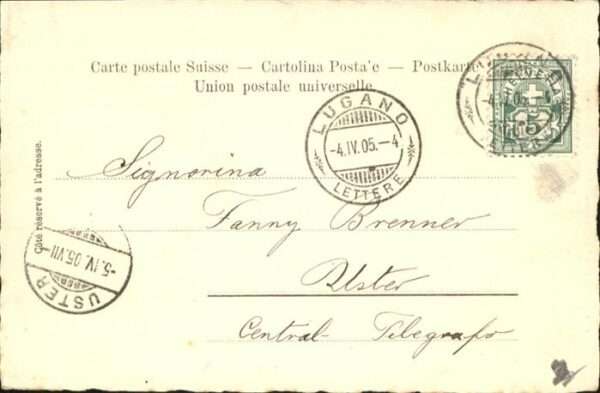 Carte postale Suisse — Cartolina Posta'e — Postkarte
Union postale universelle.
LUGANO
-4.IV.05.-4
LETTERE
HELVETIA
5
Signorina
Fanny Brenner
Uster
Central-Telegrafo
Côté réservé à l'adresse.
-5.IV.05.VII-
USTER